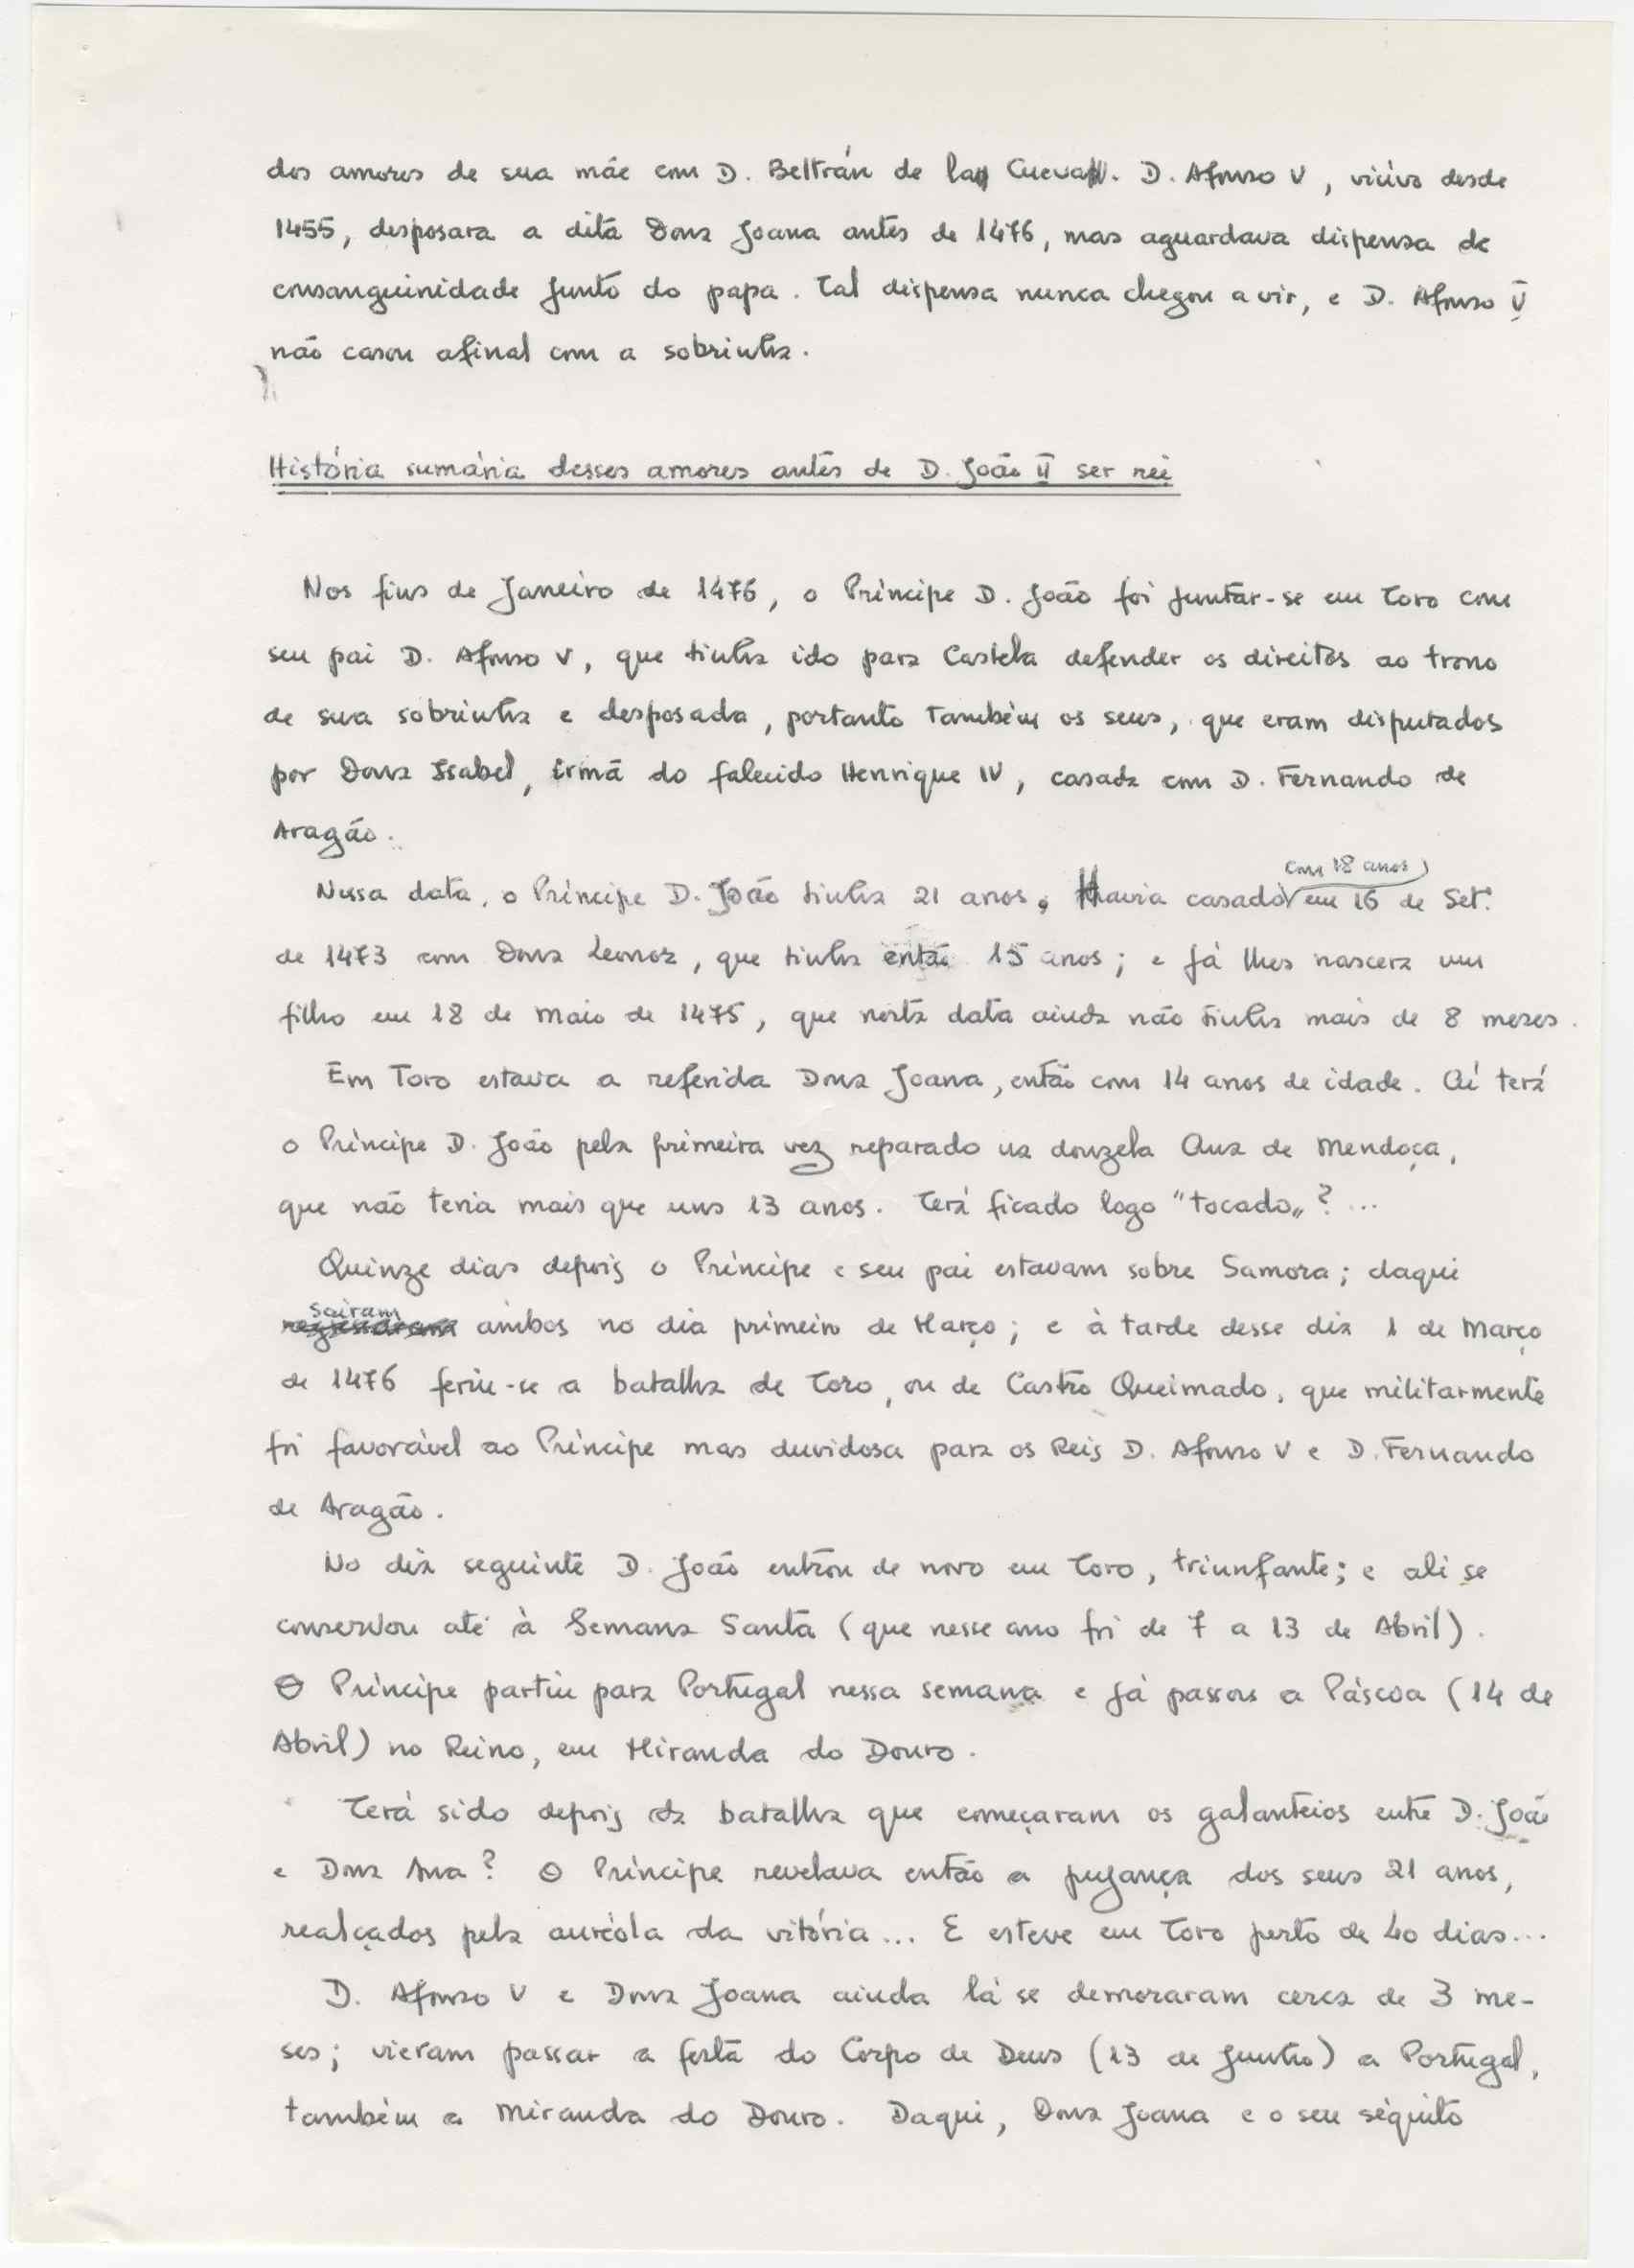 dos amores de sua mãe com D. Beltrán de la Cueva. D. Afonso V, viúvo desde
1455, desposara a dita Dona Joana antes de 1476, mas aguardava dispensa de
consanguinidade junto do papa. Tal dispensa nunca chegou a vir, e D. Afonso V
não casou afinal com a sobrinha.
História sumária desses amores antes de D. João II ser rei
Nos fins de Janeiro de 1476, o Príncipe D. João foi juntar-se em Toro com
seu pai D. Afonso V, que tinha ido para Castela defender os direitos ao trono
de sua sobrinha e desposada, portanto também os seus, que eram disputados
por Dona Isabel, irmã do falecido Henrique IV, casada com D. Fernando de
Aragão.
(com 18 anos)
Nessa data, o Príncipe D. João tinha 21 anos. Havia casado em 16 de Set.
de 1473 com Dona Leonor, que tinha então 15 anos; e já lhes nascera um
filho em 18 de Maio de 1475, que nesta data ainda não tinha mais de 8 meses.
Em Toro estava a referida Dona Joana, então com 14 anos de idade. Aí terá
o Príncipe D. João pela primeira vez reparado na donzela Ana de Mendoça,
que não teria mais que uns 13 anos. Terá ficado logo "tocado„? ...
Quinze dias depois o Príncipe e seu pai estavam sobre Samora; daqui
sairam
ambos no dia primeiro de Março; e à tarde desse dia 1 de Março
de 1476 feriu-se a batalha de Toro, ou de Castro Queimado, que militarmente
foi favorável ao Príncipe mas duvidosa para os Reis D. Afonso V e D. Fernando
de Aragão.
No dia seguinte D. João entrou de novo em Toro, triunfante; e ali se
conservou até à Semana Santa (que nesse ano foi de 7 a 13 de Abril).
O Príncipe partiu para Portugal nessa semana e já passou a Páscoa (14 de
Abril) no Reino, em Miranda do Douro.
Terá sido depois da batalha que começaram os galanteios entre D. João
e Dona Ana? O Príncipe revelava então a pujança dos seus 21 anos,
realçados pela auréola da vitória... E esteve em Toro perto de 40 dias...
D. Afonso V e Dona Joana ainda lá se demoraram cerca de 3 me-
ses; vieram passar a festa do Corpo de Deus (13 de Junho) a Portugal,
também a Miranda do Douro. Daqui, Dona Joana e o seu séquito